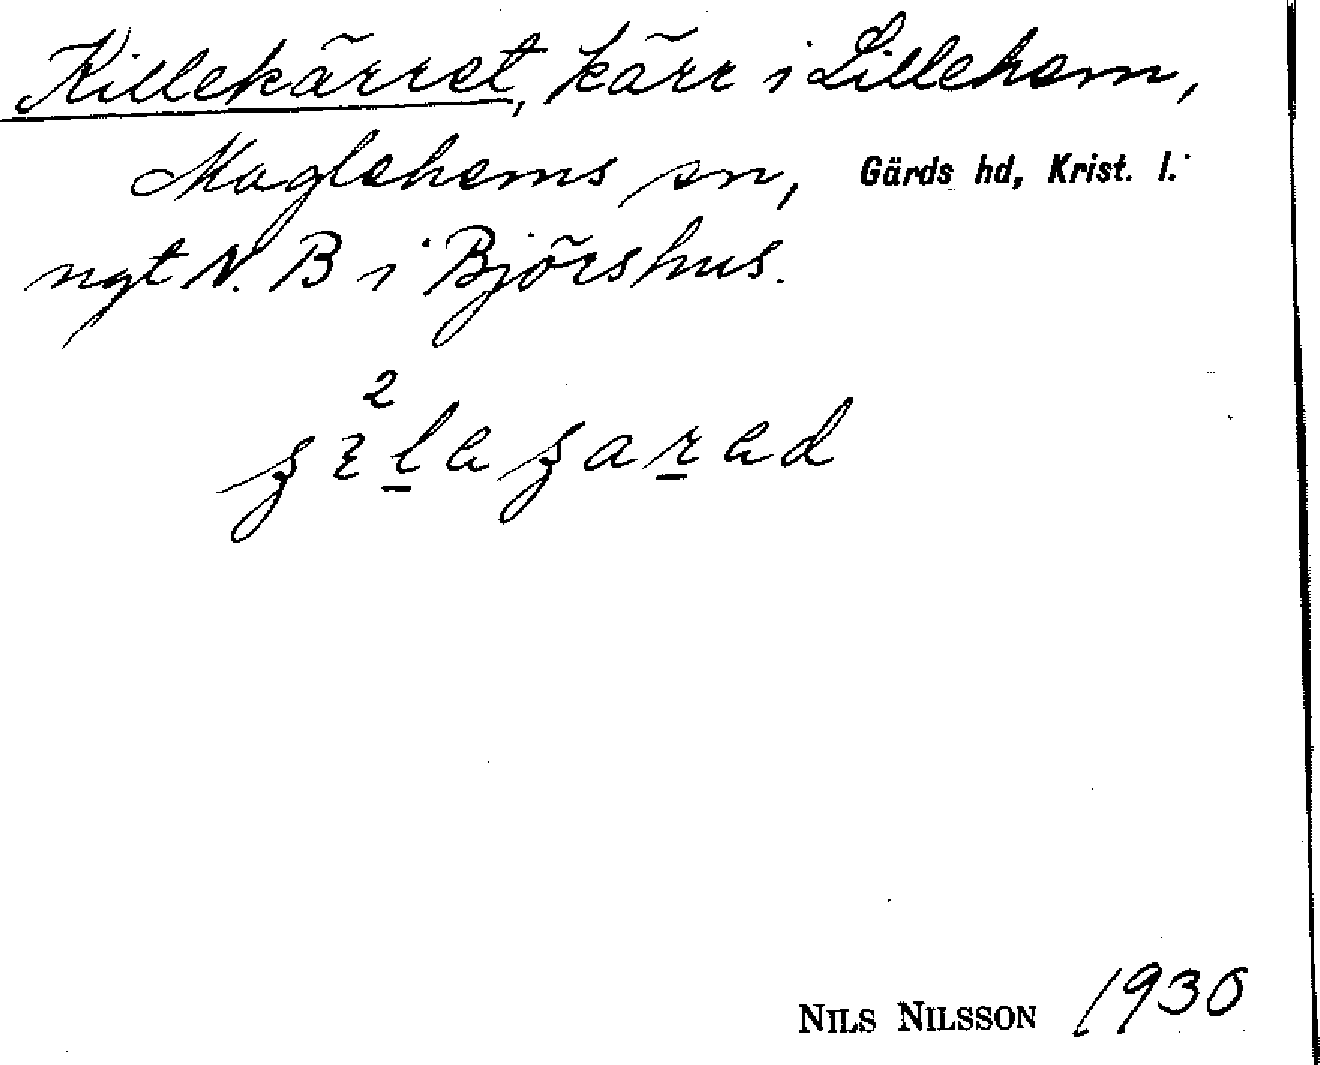 Killekärret, kärr i Lillehem,
Maglehems sn, Gärds hd, Krist. l.
ngt N. B i Björshus.
NILS NILSSON 1930